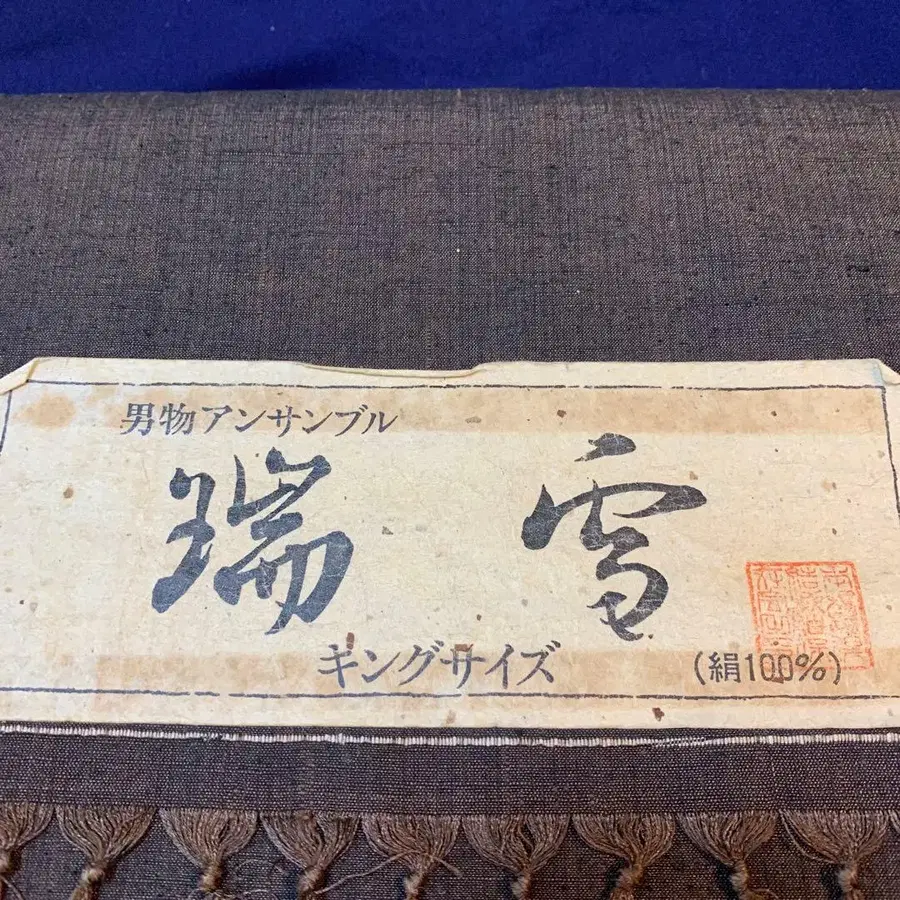 男物アンサンブル
瑞雪
キングサイズ
(絹100%)